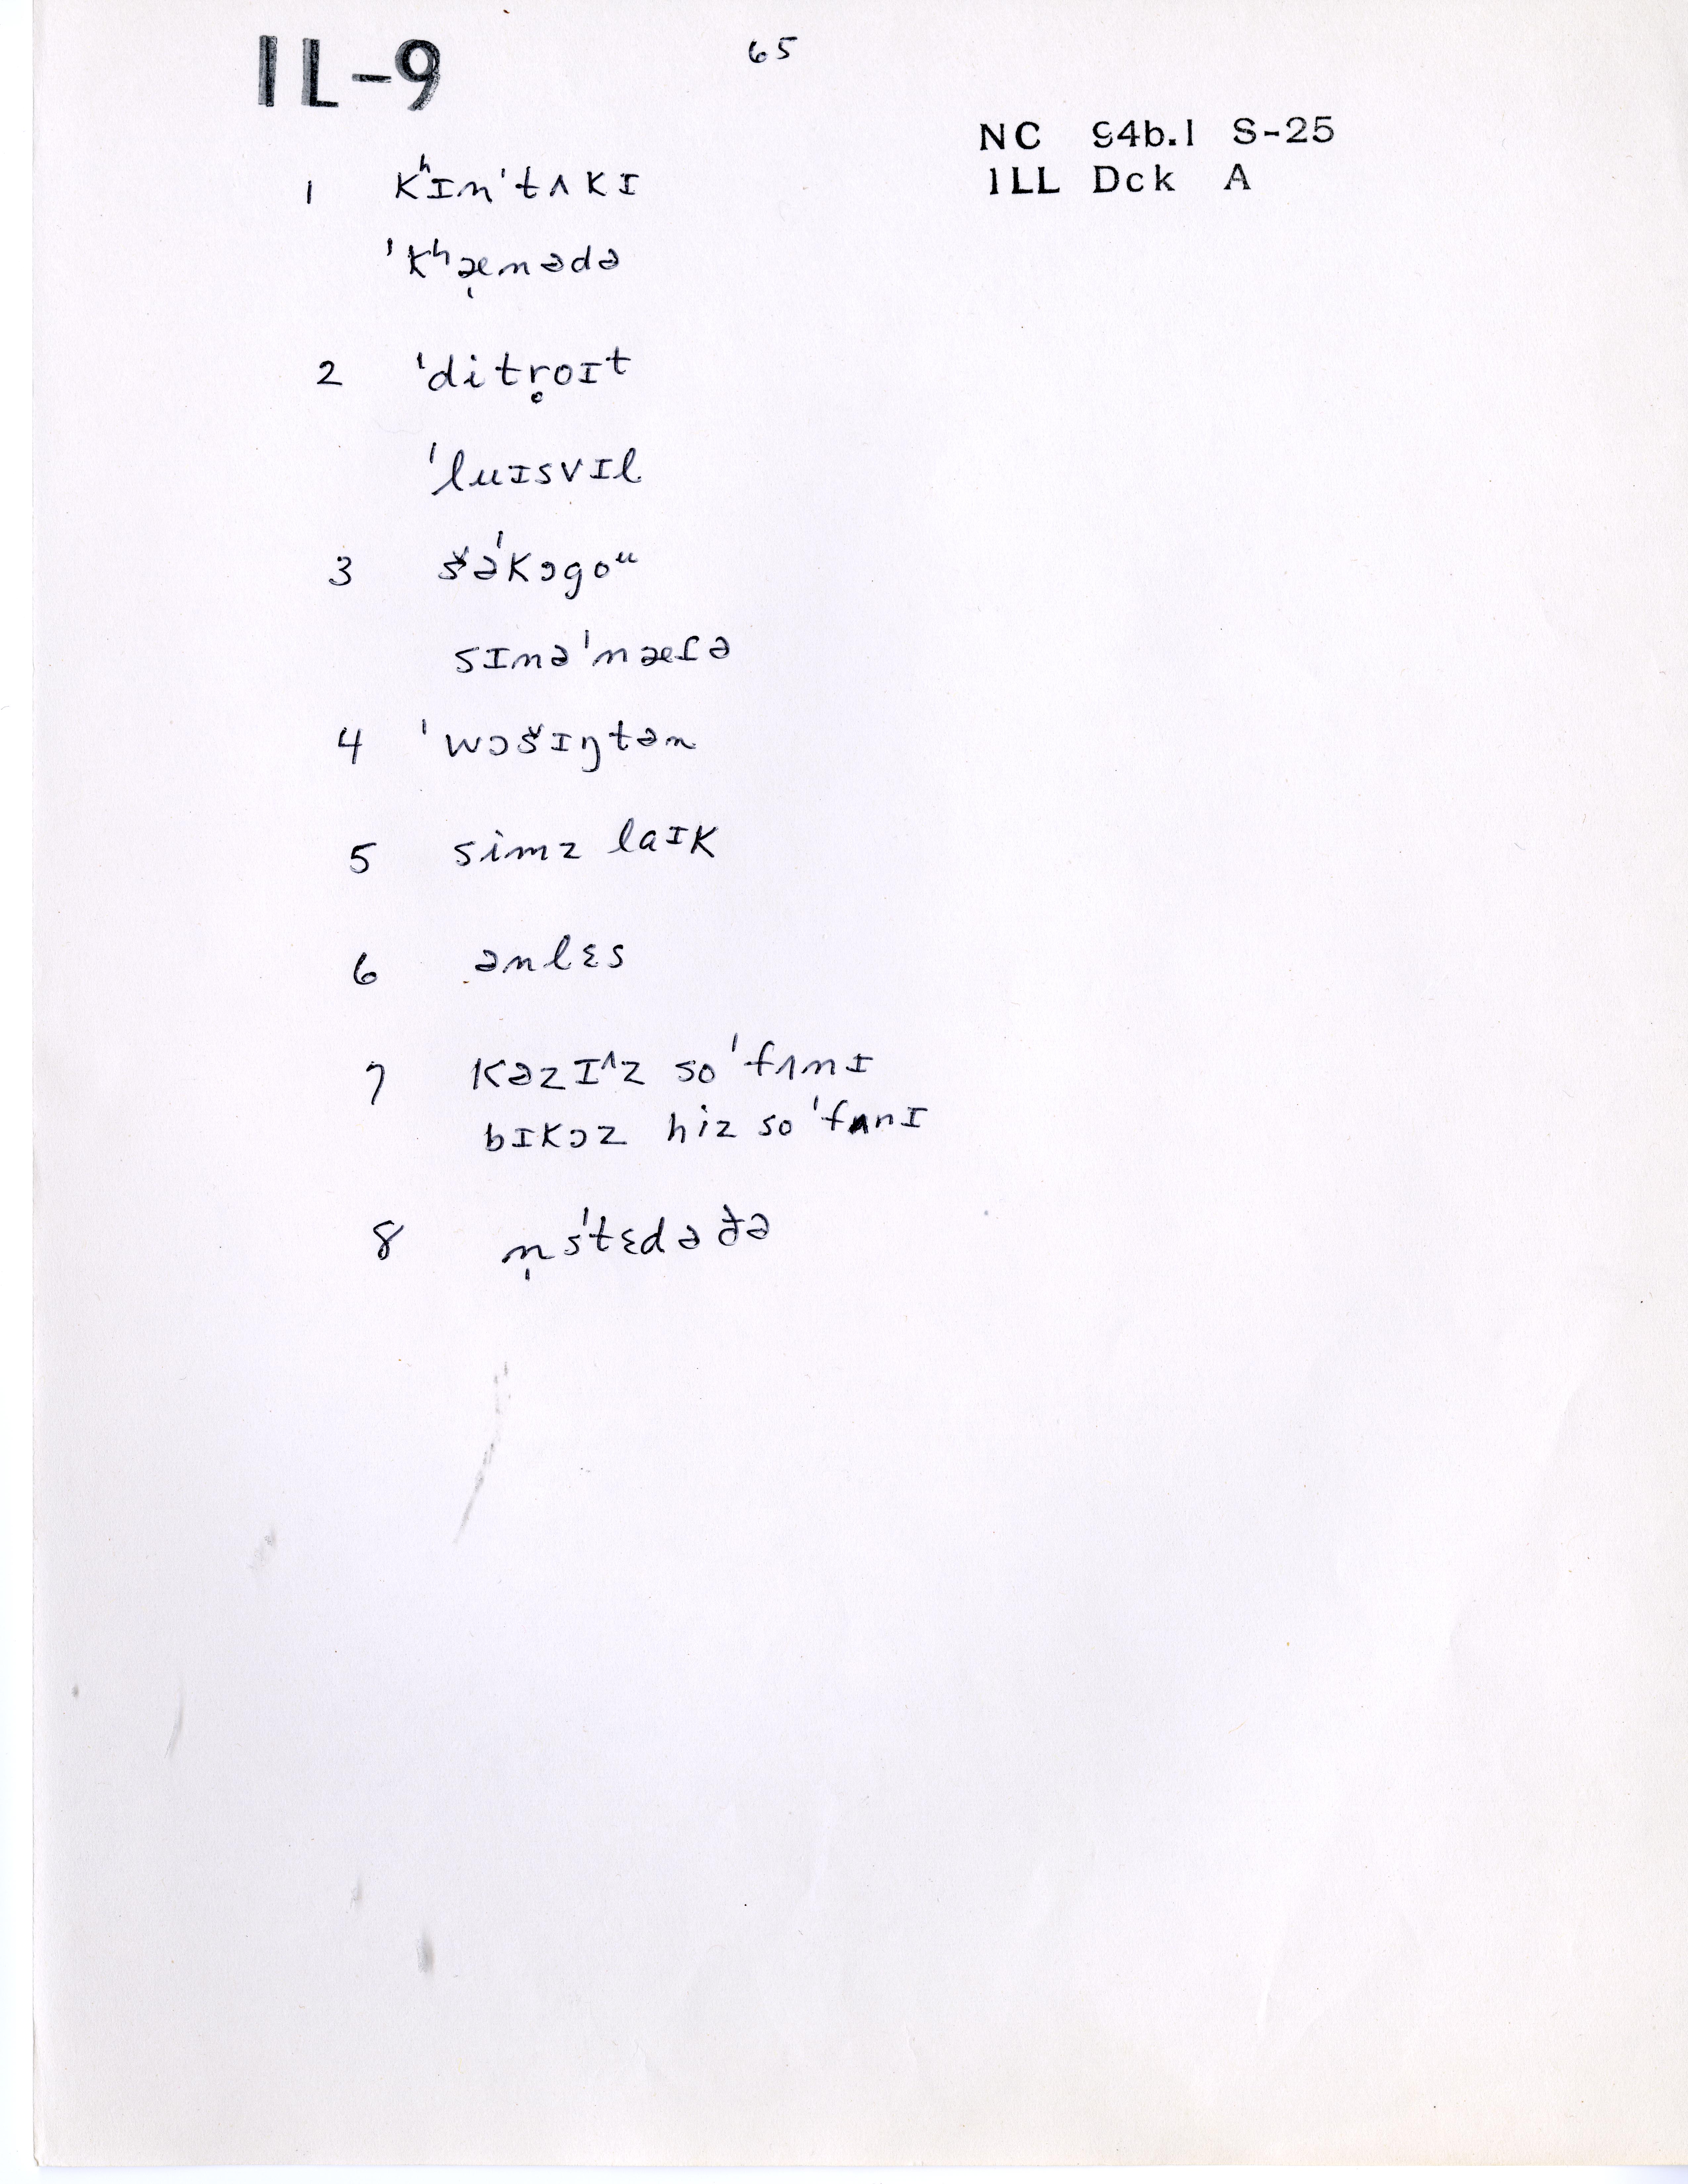 IL-9
65
NC 94b.1 S-25
ILL Dck A
1 kʰɪn'tʌkɪ
'kʰæ̩nədə
2 'ditr̥oɪt
'luɪsvɪl
3 šə'kɔgoᵘ
sɪnə'næɾə
4 'wɔšɪŋtən
5 simz laɪk
6 ənlɛs
7 kəzɪ^z so 'fʌnɪ
bɪkɔz hiz so 'fʌnɪ
8 n̩'stɛdəðə